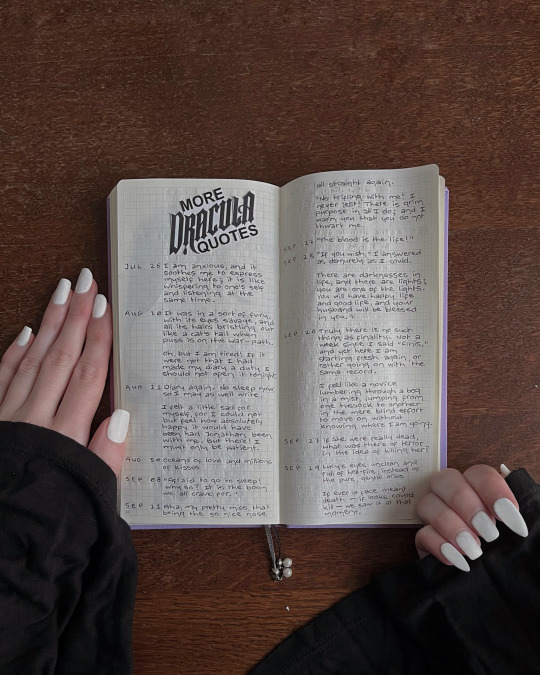 MORE
DRACULA
QUOTES
JUL 26 I am anxious, and it
soothes me to express
myself here; it is like
whispering to one's self
and listening at the
same time.
AUG 10 It was in a sort of fury,
with its eyes savage, and
all its hairs bristling out
like a cat's tail when
puss is on the war-path.
Oh, but I am tired! If it
were not that I had
made my diary a duty I
should not open it tonight
AUG 11 Diary again. No sleep now,
so I may as well write.
I felt a little sad for
myself, for I could not
but feel how absolutely
happy it would have
been had Jonathan been
with me. But there! I
must only be patient.
AUG 30 Oceans of love and millions
of kisses
SEP 08 "Afraid to go to sleep!
Why so? It is the boon
we all crave for."
SEP 11 Aha, my pretty miss, that
bring the so nice nose
all straight again.
"No trifling with me! I
never jest! There is grim
purpose in all I do; and I
warn you that you do not
thwart me.
SEP "The blood is the life!"
SEP "If you wish," I answered
as demurely as I could.
There are darknesses in
life, and there are lights;
you are one of the lights.
You will have happy life
and good life, and your
husband will be blessed
in you.
SEP 26 Truly there is no such
thing as finality. Not a
week since I said "Finis,"
and yet here I am
starting fresh again, or
rather going on with the
same record.
I feel like a novice
lumbering through a bog
in a mist, jumping from
one tussock to another
in the mere blind effort
to move on without
knowing where I am going.
SEP 27 If she were really dead,
what was there of terror
in the idea of killing her?
SEP 29 Lucy's eyes unclean and
full of hell-fire, instead of
the pure, gentle orbs
If ever a face meant
death — if looks could
kill — we saw it at that
moment.